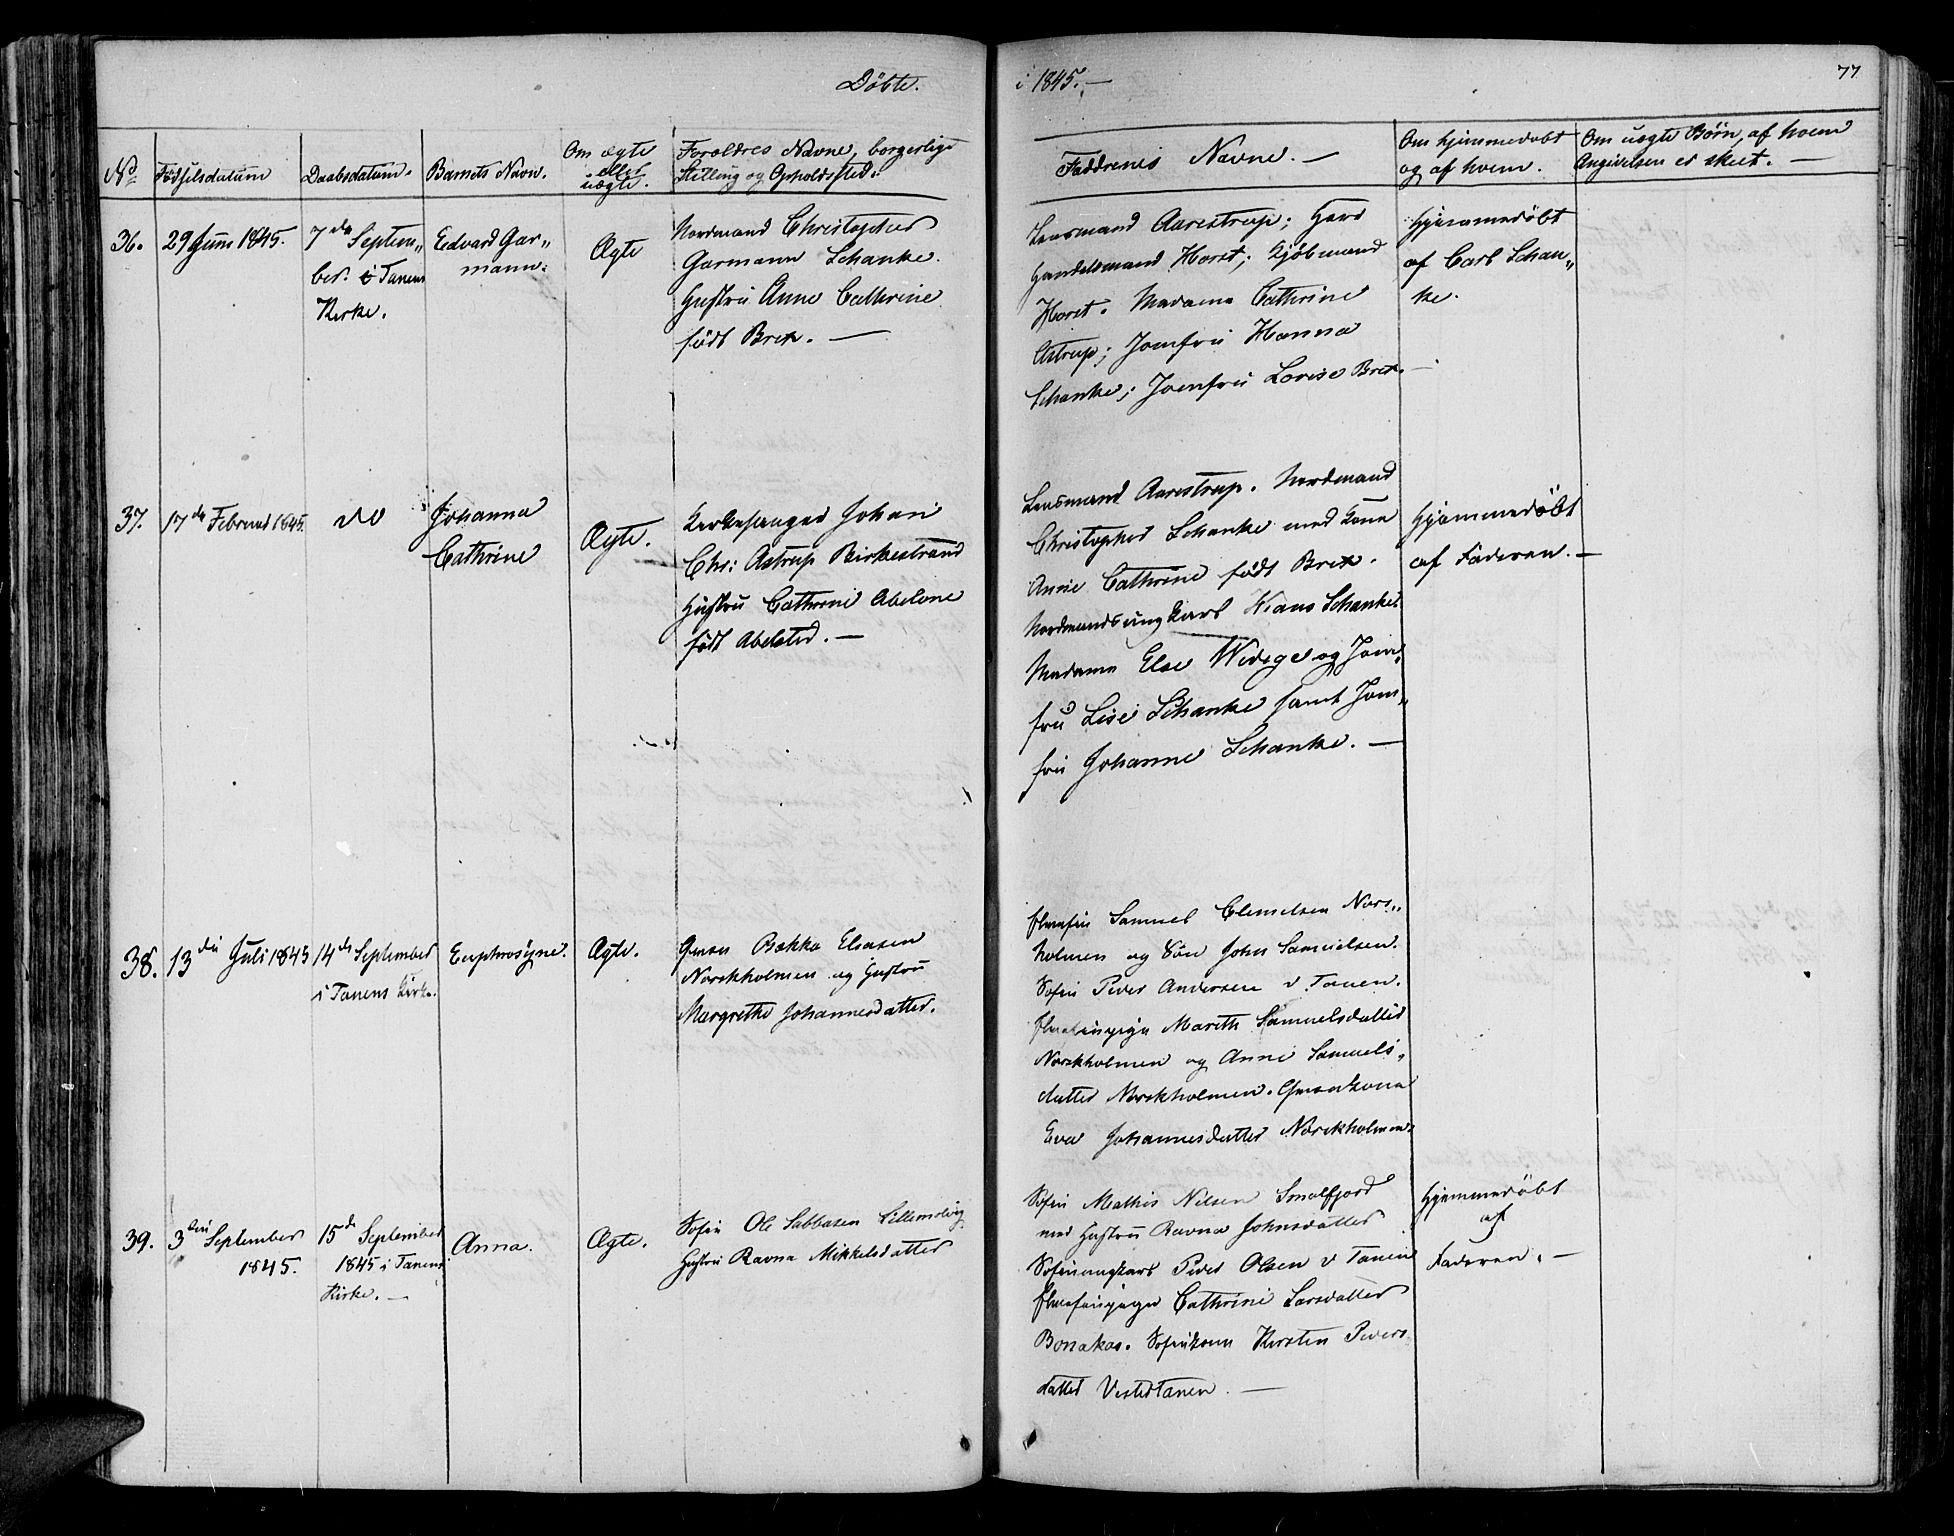 Döbte.
i 1845.—
77
No
Födselsdatum
Daabsdatum.
Barnets Navn.
Om ægte
eller
uægte.
Forældres Navne, borgerlige
Stilling og Opholdssted.
Faddrenes Navne. —
Om hjemmedøbt
og af hvem.
Om uægte Børn, af hvem
Angivelsen er skeet. —
36.
29 Juni 1845.
7de Septem„
ber. i Tanens
Kirke.
Edvard Gar„
mann.
Ægte
Nordmand Christopher
Garmann Schanke.
Hustru Anne Cathrine
født Brex. —
Lensmand Aarestrup;
Handelsmand Horst; Kjöbmand
Horst. Madame Cathrine
Astrup; Jomfru Hanna
Schanke; Jomfru Lovise Brex. —
Hjemmedöbt
af Carl Schan„
ke.
37.
17de Februar 1845.
do
Johanna
Cathrine
Ægte.
Kirkesanger Johan
Chr: Astrup Birkestrand
Hustru Cathrine Abelone
født Abelsted. —
Lensmand Aarestrup. Nordmand
Christopher Schanke med Kone
Anne Cathrine født Brex.
Nordmandsungkarl Klaus Schanke.
Madame Else Widsge og Jom„
fru Lise Schanke samt Jom„
fru Johanne Schanke. —
Hjemmedöbt
af Faderen. —
38.
13de Juli 1845
14de September
i Tanens Kirke.
Euphrosyne.
Ægte.
Qvæn Esaksen
Norskholmen og Hustru
Margrethe Johannesdatter.
Samuel Clemetsen Nors„
kolmen og Søn John Samuelsen.
Sofin Peder Andersen v Tanen.
Marith Samuelsdatter
Norskholmen og Anne Samuels„
datter Norskholmen. Qvænkone
Eva Johannesdatter Norskholmen.
39.
3die September
1845.
15de September
1845 i Tanens
Kirke. —
Anna.
Ægte.
Sofin Ole Sabbasen
Hustru Ravna Mikkelsdatter
Sofin Mathis Nilsen Smalfjord
med Hustru Ravna Johnsdatter
Sofinungkarl Peder Olsen v Tanen
Cathrine Larsdatter
Bonakas. Sofinkone Kirsten Peders
datter Vestertanen. —
Hjemmedöbt
af
Faderen. —